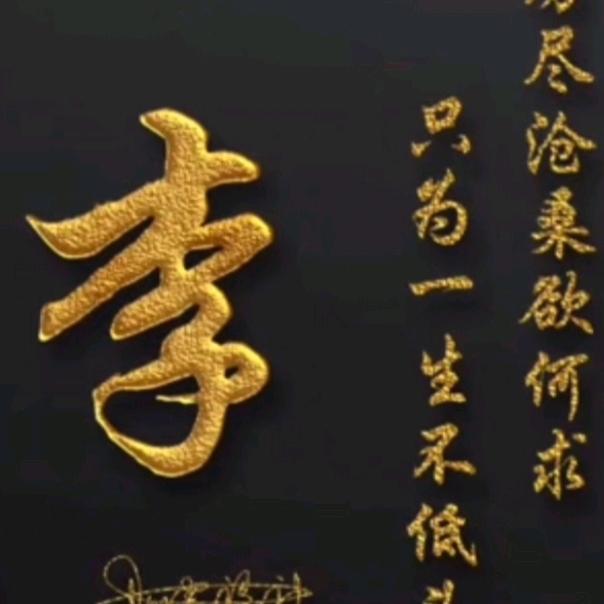 尽沧桑欲何求
只为一生不低
李